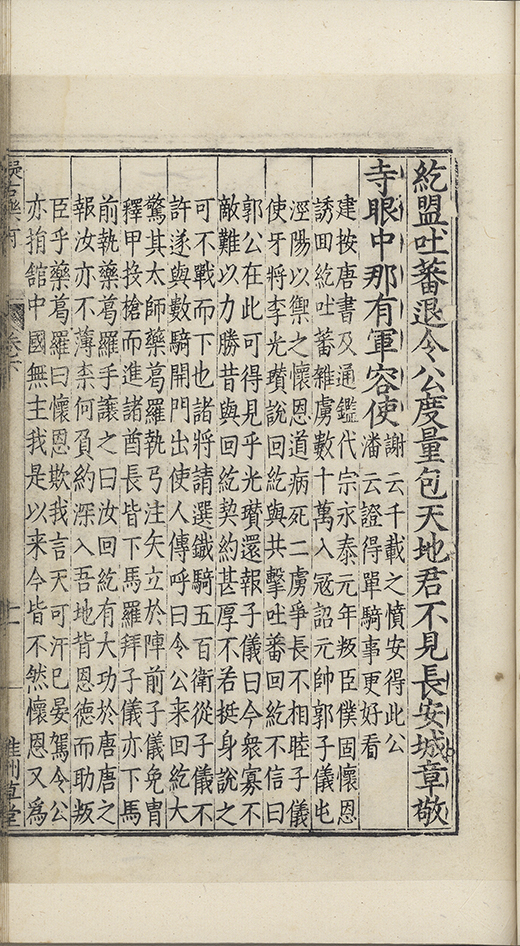 紇盟吐蕃退令公度量包天地君不見長安城章敬
寺眼中那有軍容使
謝云千載之憤安得此公
潘云證得單騎事更好看
建按唐書及通鑑代宗永泰元年叛臣僕固懷恩
誘回紇吐蕃雜虜數十萬入冦詔元帥郭子儀屯
涇陽以禦之懷恩道病死二虜爭長不相睦子儀
使牙將李光瓚說回紇與共擊吐蕃回紇不信曰
郭公在此可得見乎光瓚還報子儀曰今衆寡不
敵難以力勝昔與回紇契約甚厚不若挺身說之
可不戰而下也諸將請選鐵騎五百衛從子儀不
許遂與數騎開門出使人傳呼曰令公来回紇大
驚其太師藥葛羅執弓注矢立於陣前子儀免胄
釋甲投槍而進諸酋長皆下馬羅拜子儀亦下馬
前執藥葛羅手讓之曰汝回紇有大功於唐唐之
報汝亦不薄柰何負約深入吾地背恩德而助叛
臣乎藥葛羅曰懷恩欺我言天可汗已晏駕令公
亦捐舘中國無主我是以来今皆不然懷恩又為
擬古樂府 卷下 十一